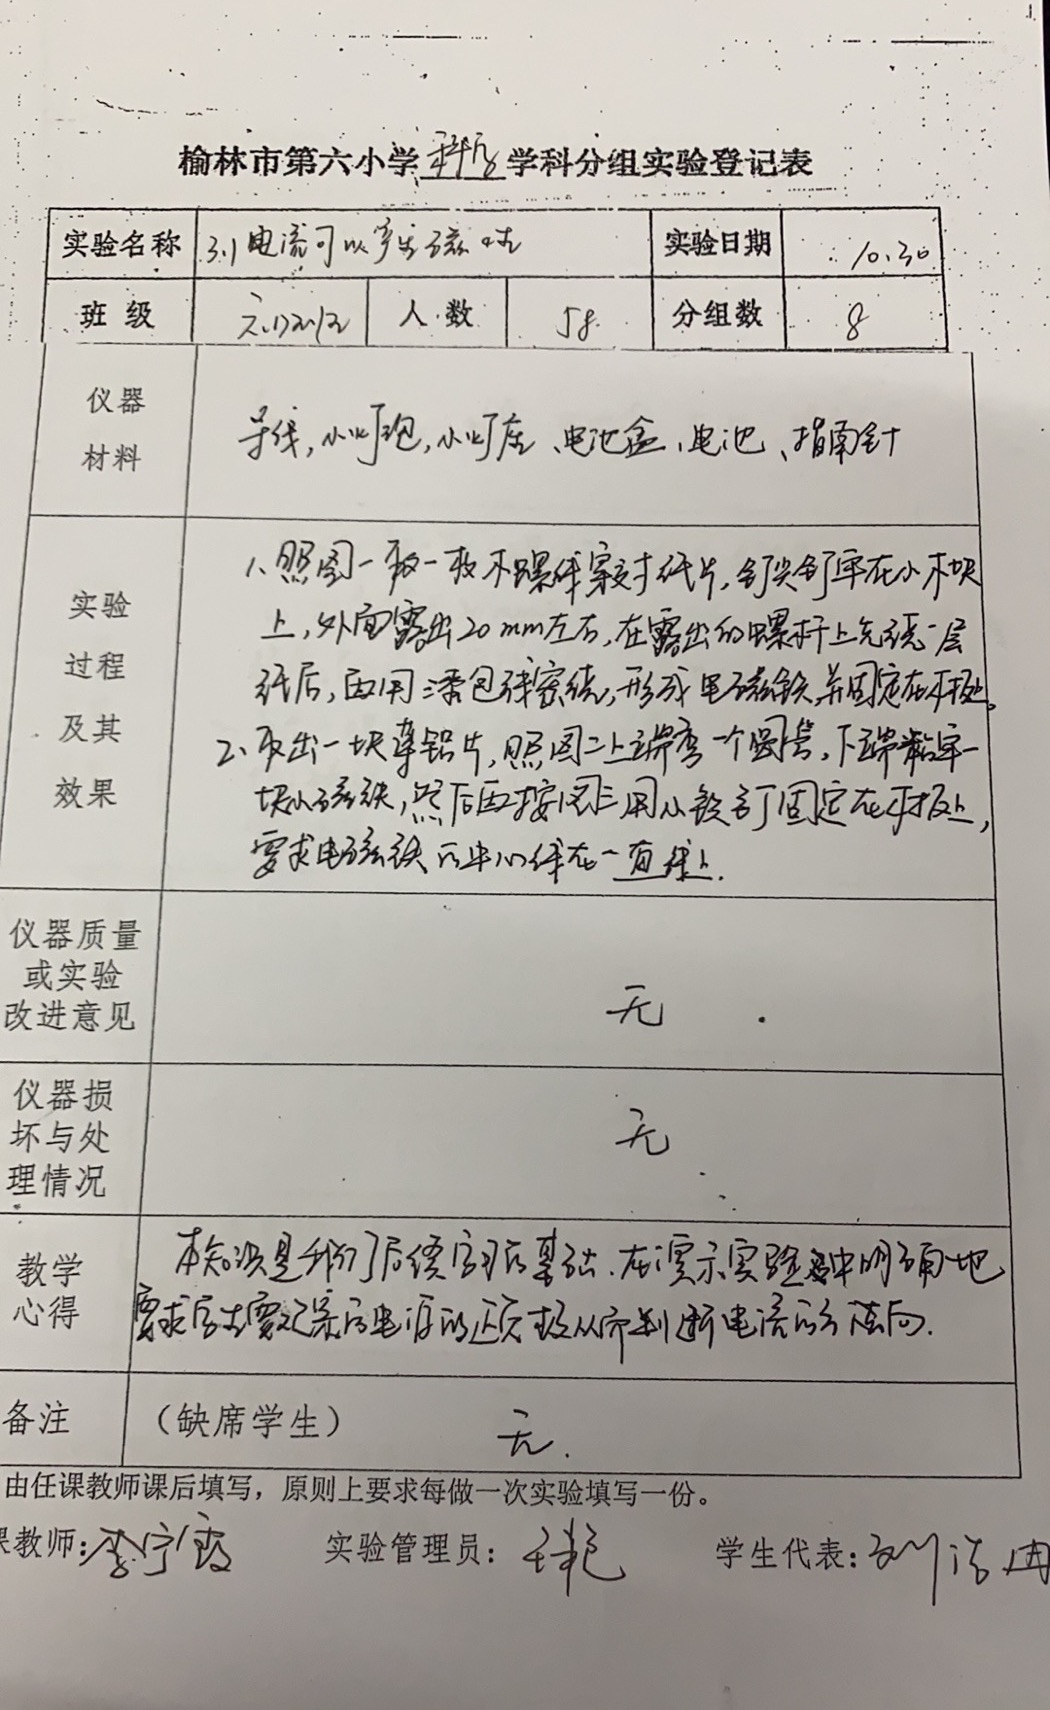 榆林市第六小学科学学科分组实验登记表
实验名称 3.1电流可以产生磁性 实验日期 10.30
班级 人数 58 分组数 8
仪器材料 导线,小灯泡,小灯座、电池盒、电池、指南针
实验过程及其效果
1、照图一取一枚木螺丝穿过寸纸片,钉尖钉牢在小木块
上,外面露出20mm左右,在露出的螺杆上先绕一层
纸后,再用漆包线密绕,形成电磁铁,并固定在木板上。
2、取出一块薄铝片,照图二上端弯一个圆筒,下端粘牢一
块小磁铁,然后再按图三用小铁钉固定在木板上,
要求电磁铁的中心线在一直线上.
仪器质量或实验改进意见 无
仪器损坏与处理情况 无
教学心得
本知识是我们后续学习的基础.在演示实验中明确地
要求学生要记录的电源的正负极从而判断电流的方向.
备注 (缺席学生) 无.
由任课教师课后填写,原则上要求每做一次实验填写一份。
课教师: 李宁霞 实验管理员: 学生代表: 刘